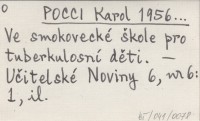 0
POCCI Karol 1956...
Ve smokovecké škole pro
tuberkulosní děti. —
Učitelské Noviny 6, nr 6:
1, il.
15/041/0078